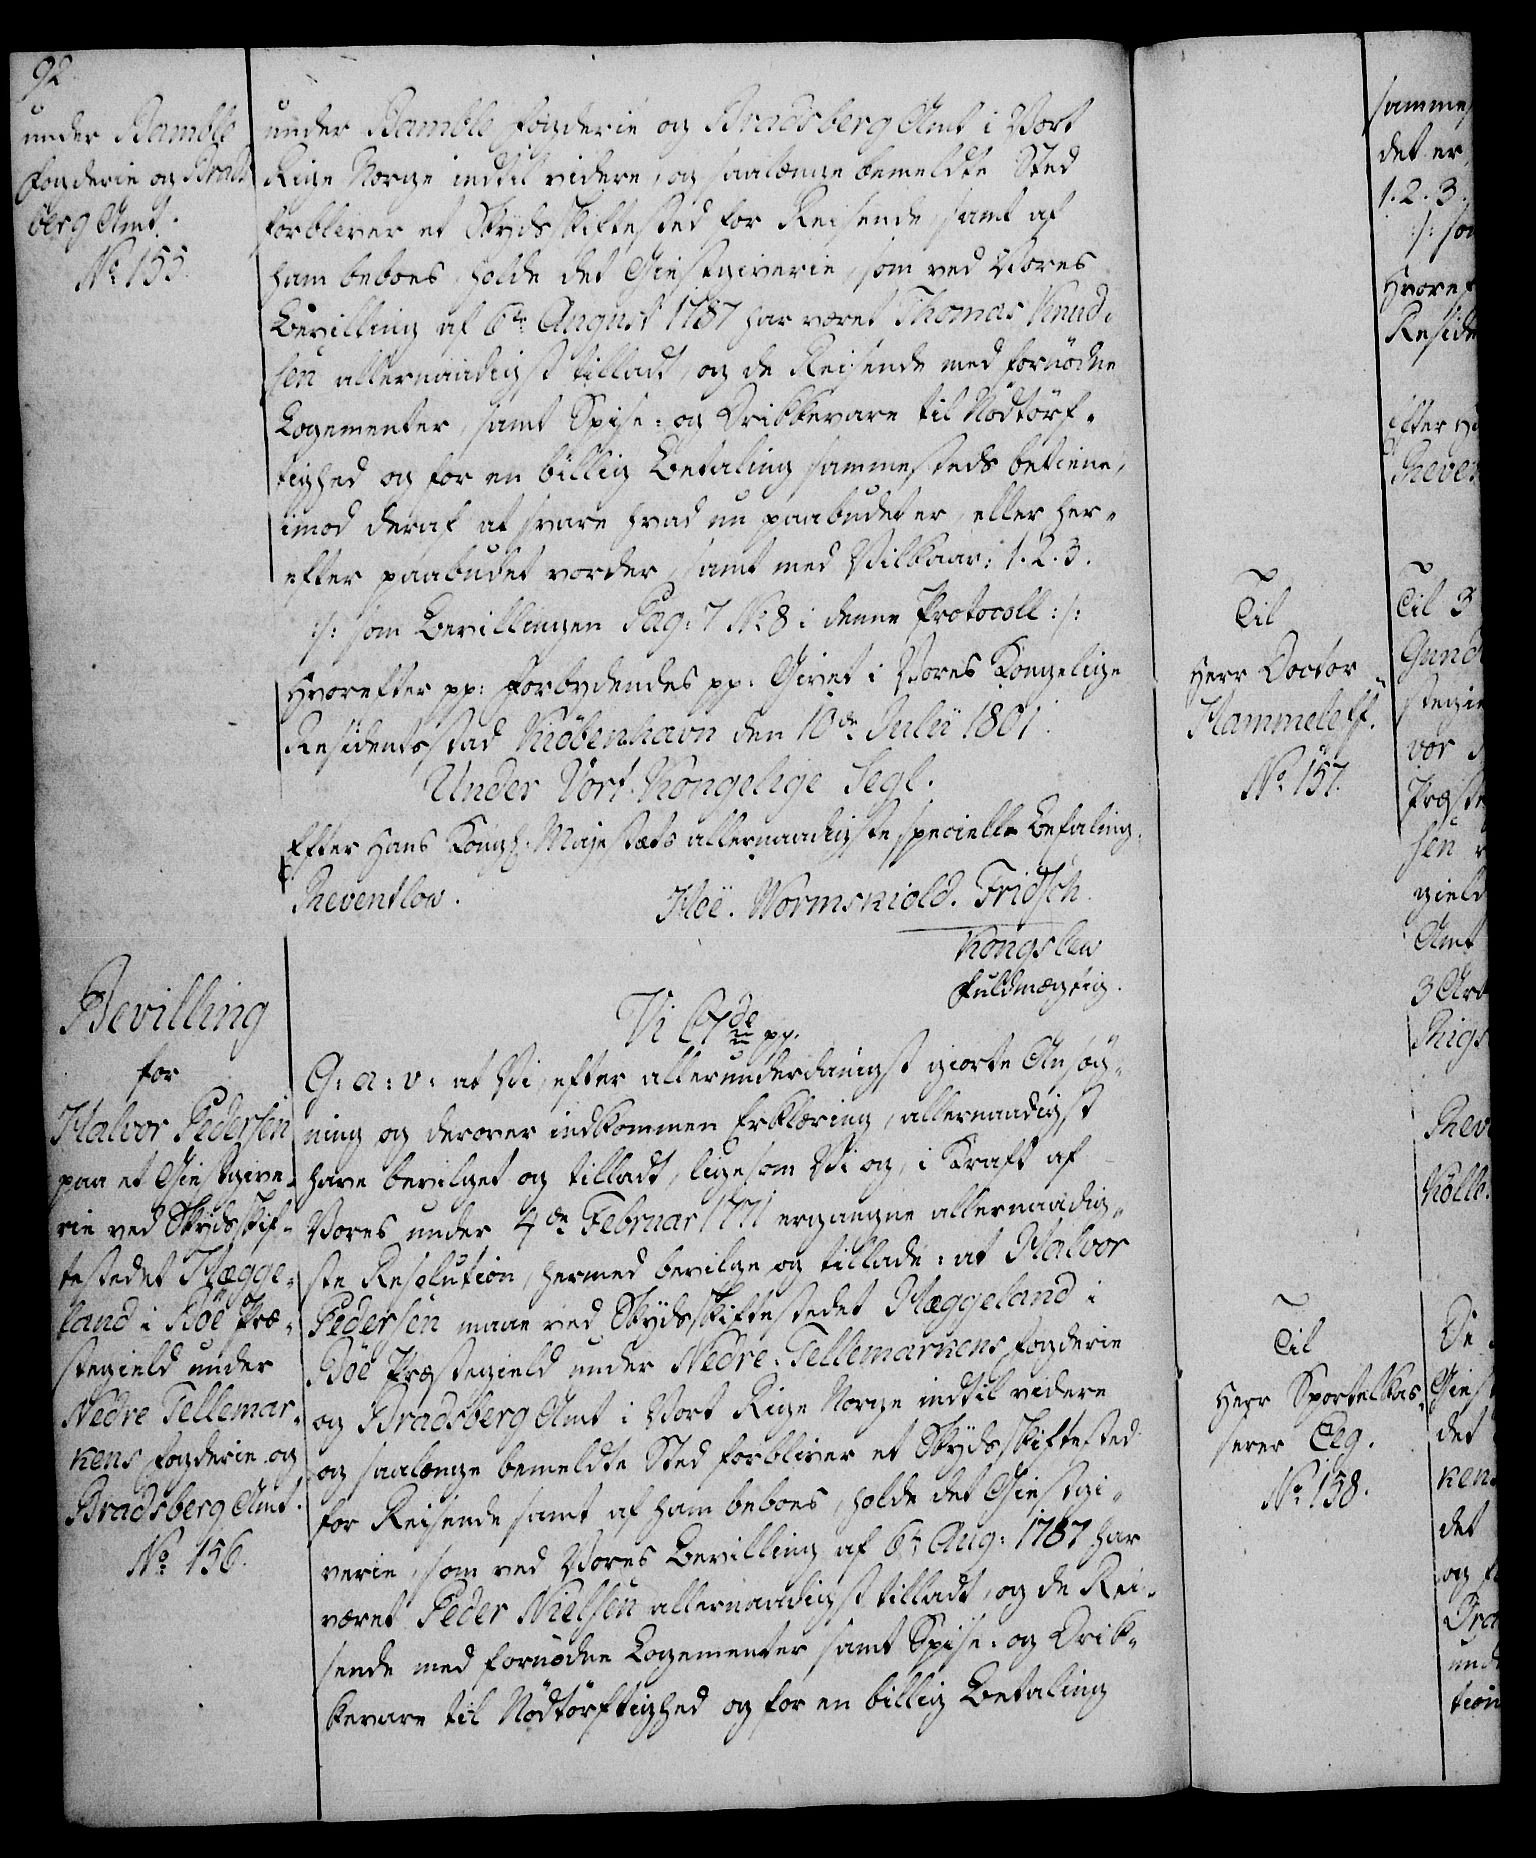 92
under Bamble
Fogderie og Brads
berg Amt.
No 155.
under Bamble Fogderie og Bradsberg Amt i Vort
Rige Norge indtil videre, og saalænge bemeldte Sted
forbliver et Skydsskiftested for Reisende, samt af
ham beboes, holde det Giestgiverie, som ved Vores
Bevilling af 6te August 1787 har været Thomas Knud-
sen allernaadigst tilladt, og de Reisende med fornødne
Logementer, samt Spise- og Drikkevare til Nödtörf-
tighed og for en billig Betaling sammesteds betiene,
imod deraf at svare hvad nu paabudet er, eller her-
efter paabudet vorder, samt med Vilkaar: 1. 2. 3.
:/: som Bevillingen Pag: 7 No 8 i denne Protocoll :/:
Hvorefter pp: Forbydendes pp: Givet i Vores Kongelige
Residentsstad Kiöbenhavn den 10de Julii 1801.
Under Vort Kongelige Segl.
Efter Hans Kongl: Majestæts allernaadigste specielle Befaling.
Reventlow. Höe. Wormskiold. Fridsch.
Kongslew
Fuldmægtig.
Bevilling
for
Halvor Pedersen
paa et Giestgive-
rie ved Skydsskif-
testedet Hægge-
land i Böe Præ-
stegield under
Nedre Tellemar-
kens Fogderie og
Bradsberg Amt.
No 156.
Vi C 7de pp.
G: a: v: at Vi, efter allerunderdanigst giorte Ansög-
ning og derover indkommen Erklæring, allernaadigst
have bevilget og tilladt, ligesom Vi og, i Kraft af
Vores under 4de Februar 1771 ergangne allernaadig-
ste Resolution, hermed bevilge og tillade: at Halvor
Pedersen maae ved Skydsskiftestedet Hæggeland i
Böe Præstegield under Nedre-Tellemarkens Fogderie
og Bradsberg Amt i Vort Rige Norge indtil videre
og saalænge bemeldte Sted forbliver et Skydsskiftested
for Reisende samt af ham beboes, holde det Giestgi-
verie, som ved Vores Bevilling af 6te Aug: 1787 har
været Peder Nielsen allernaadigst tilladt, og de Rei-
sende med fornödne Logementer samt Spise- og Drik-
kevare til Nödtörftighed og for en billig Betaling
Til
Herr Doctor
Hammeleff.
No 157.
Til
Herr Sportelkas-
serer Eeg.
No 158.
samme
det er
1. 2. 3.
:/: som
Hvoref
Reside
Efter
Reven
Til
Gund
stegie
vor
Præste
sen
gield
Amt
3 Art
Rigs
Rev
Kölle.
De
Giest
det
ken
det
og
Bra
und
tion